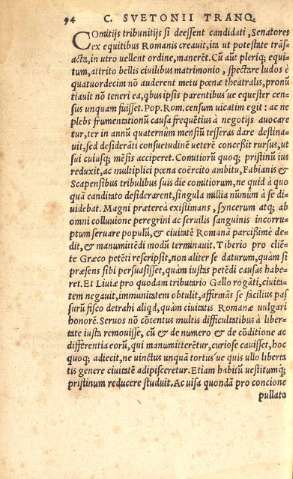 94 C. SVETONII TRANQ.
Comitijs tribunitijs si deessent candidati, Senatores
ex equitibus Romanis creauit, ita ut potestate trãs/
acta, in utro uellent ordine, manerẽt. Cũ aũt pleriq; equi/
tum, attrito bellis ciuilibus matrimonio, spectare ludos è
quatuordecim nõ auderent metu pœnæ theatralis, pronũ
tiauit nõ teneri ea, quibus ipsis parentibus ue equester cen-
sus unquam fuisset. Pop. Rom. censum uicatim egit: ac ne
plebs frumentationũ causa frequẽtius à negotijs auoca-
retur, ter in annũ quaternum mensiũ tesseras dare destina-
uit, sed desiderãti consuetudinẽ ueterẽ concessit rursus, ut
sui cuiusq; mẽsis acciperet. Comitiorũ quoq; pristinũ ius
reduxit, ac multiplici pœna coërcito ambitu, Fabianis &
Scapensibus tribulibus suis die comitiorum, ne quid à quo
quã candidato desiderarent, singula millia nũmũ à se di-
uidebat. Magni præterea existimans, syncerum atq; ab
omni colluuione peregrini ac seruilis sanguinis incorru-
ptum seruare populũ, & ciuitatẽ Romanã parcissimè de-
dit, & manumittẽdi modũ terminauit. Tiberio pro cliẽ-
te Græco petẽti rescripsit, non aliter se daturum, quàm si
præsens sibi persuasisset, quàm iustas petẽdi causas habe-
ret. Et Liuiæ pro quodam tributario Gallo rogãti, ciuita-
tem negauit, immunitatem obtulit, affirmãs se facilius pas
surũ fisco detrahi aliqd, quàm ciuitatis Romanæ uulgari
honorẽ. Seruos nõ cõtentus multis difficultatibus à liber-
tate iusta remouisse, cũ & de numero & de cõditione ac
differentia eorũ, qui manumitterẽtur, curiose cauisset, hoc
quoq; adiecit, ne uinctus unquã tortus ue quis ullo liberta
tis genere ciuitatẽ adipisceretur. Etiam habitũ uestitumq;
pristinum reducere studuit. Ac uisa quondã pro concione
pullata